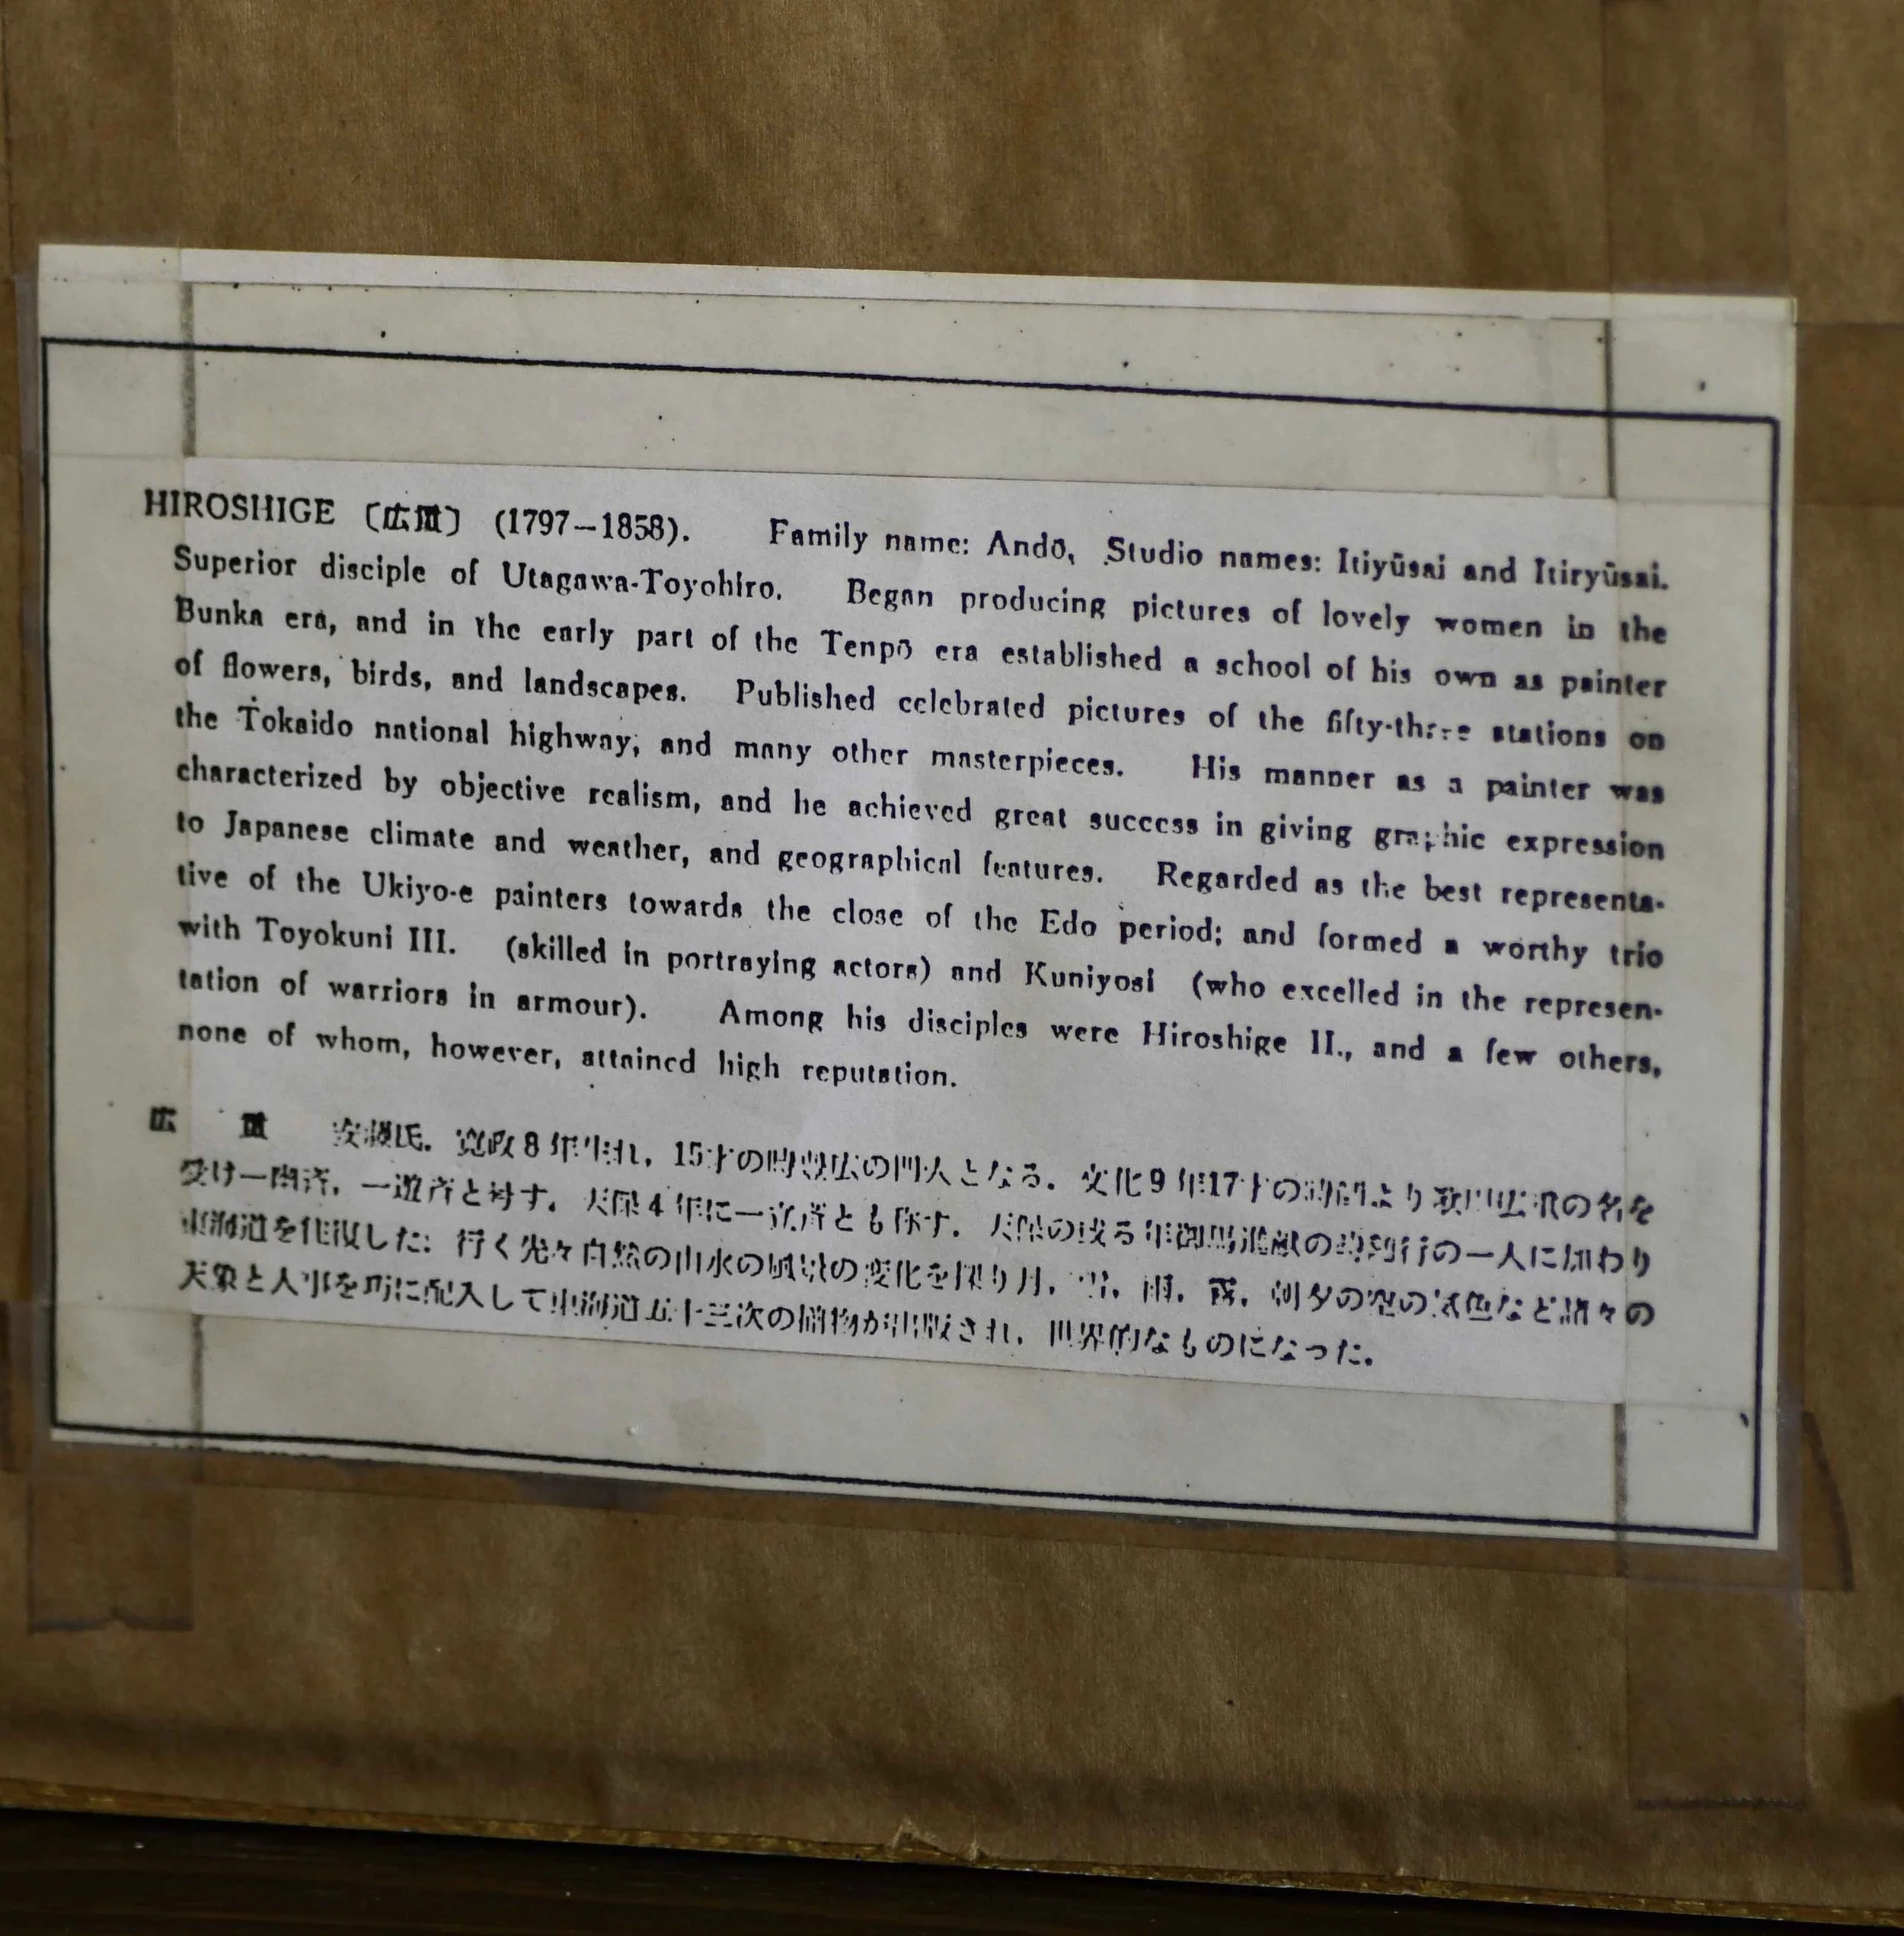 HIROSHIGE 〔広重〕 (1797–1858). Family name: Andō, Studio names: Itiyūsai and Itiryūsai.
Superior disciple of Utagawa-Toyohiro. Began producing pictures of lovely women in the
Bunka era, and in the early part of the Tenpō era established a school of his own as painter
of flowers, birds, and landscapes. Published celebrated pictures of the fifty-three stations on
the Tokaido national highway, and many other masterpieces. His manner as a painter was
characterized by objective realism, and he achieved great success in giving graphic expression
to Japanese climate and weather, and geographical features. Regarded as the best representa-
tive of the Ukiyo-e painters towards the close of the Edo period; and formed a worthy trio
with Toyokuni III. (skilled in portraying actors) and Kuniyosi (who excelled in the represen-
tation of warriors in armour). Among his disciples were Hiroshige II., and a few others,
none of whom, however, attained high reputation.
広 重 安藤氏. 寛政8年生れ, 15才の時豊広の門人となる. 文化9年17才の時師より歌川広重の名を
受け一幽斉, 一遊斉と号す. 天保4年に一立斉とも称す. 天保の或る年御馬進献の行の一人に加わり
東海道を往復した: 行く先々自然の山水の風景の変化を探り月, 雪, 雨, 霧, 朝夕の空の気色など諸々の
天象と人事を巧に配入して東海道五十三次の揃物が出版され, 世界的なものになった.